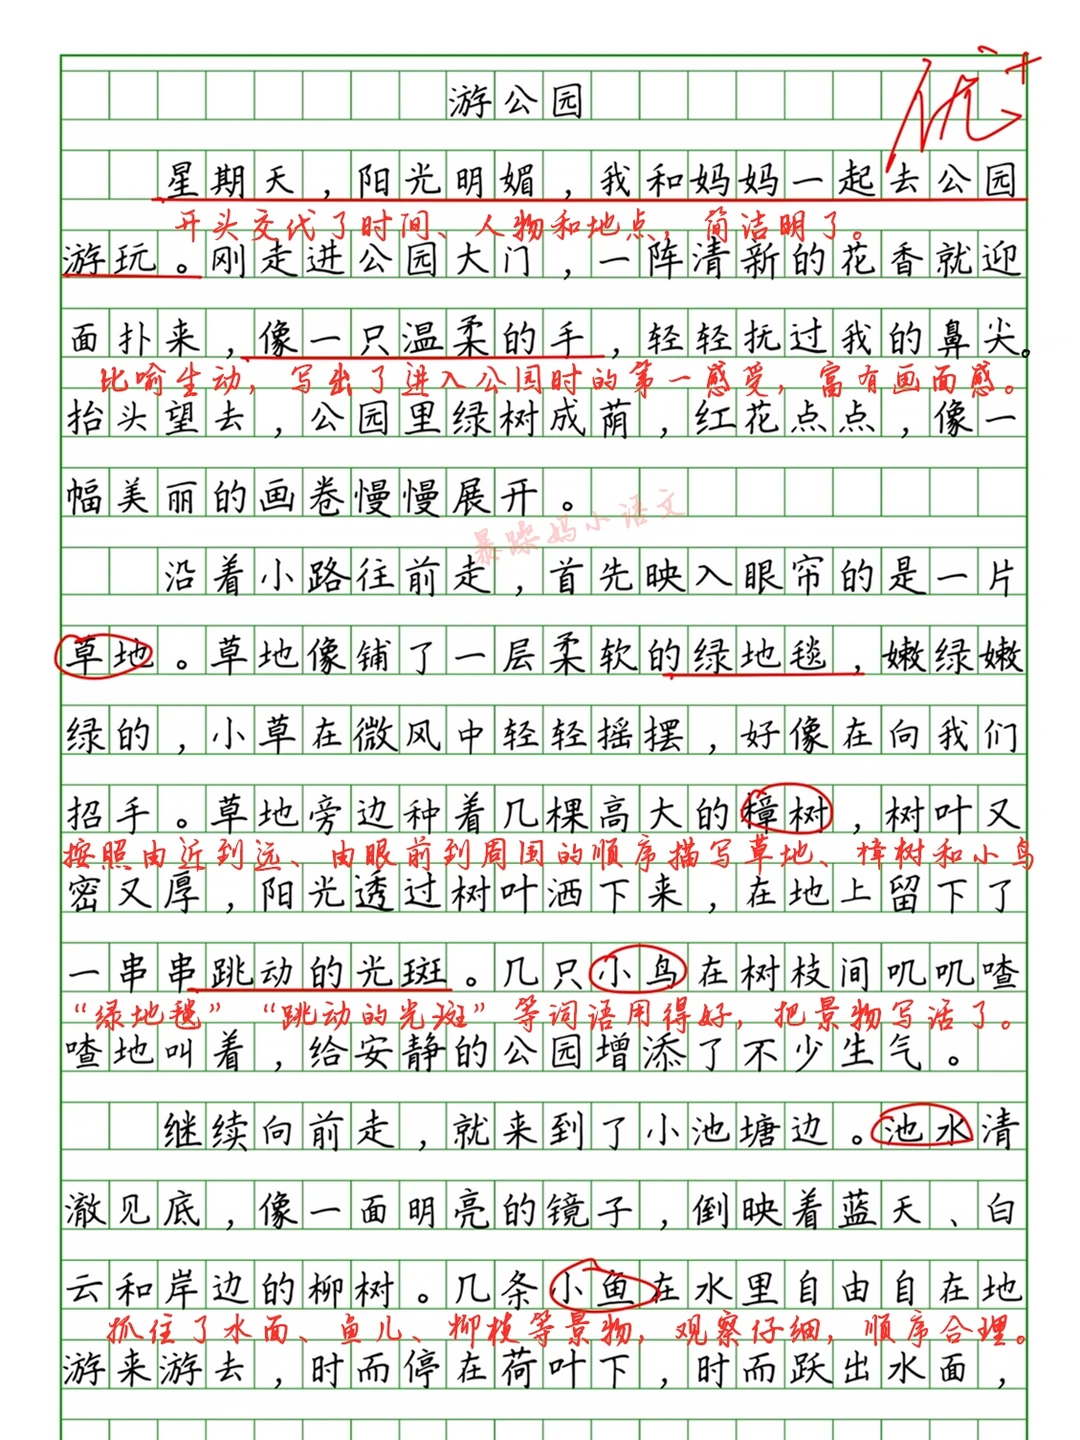 优+
游公园
星期天，阳光明媚，我和妈妈一起去公园
开头交代了时间、人物和地点，简洁明了。
游玩。刚走进公园大门，一阵清新的花香就迎
面扑来，像一只温柔的手，轻轻抚过我的鼻尖。
比喻生动，写出了进入公园时的第一感受，富有画面感。
抬头望去，公园里绿树成荫，红花点点，像一
幅美丽的画卷慢慢展开。
暴躁妈小语文
沿着小路往前走，首先映入眼帘的是一片
草地。草地像铺了一层柔软的绿地毯，嫩绿嫩
绿的，小草在微风中轻轻摇摆，好像在向我们
招手。草地旁边种着几棵高大的樟树，树叶又
按照由近到远、由眼前到周围的顺序描写草地、樟树和小鸟
密又厚，阳光透过树叶洒下来，在地上留下了
一串串跳动的光斑。几只小鸟在树枝间叽叽喳
“绿地毯”“跳动的光斑”等词语用得好，把景物写活了。
喳地叫着，给安静的公园增添了不少生气。
继续向前走，就来到了小池塘边。池水清
澈见底，像一面明亮的镜子，倒映着蓝天、白
云和岸边的柳树。几条小鱼在水里自由自在地
抓住了水面、鱼儿、柳枝等景物，观察仔细，顺序合理。
游来游去，时而停在荷叶下，时而跃出水面，